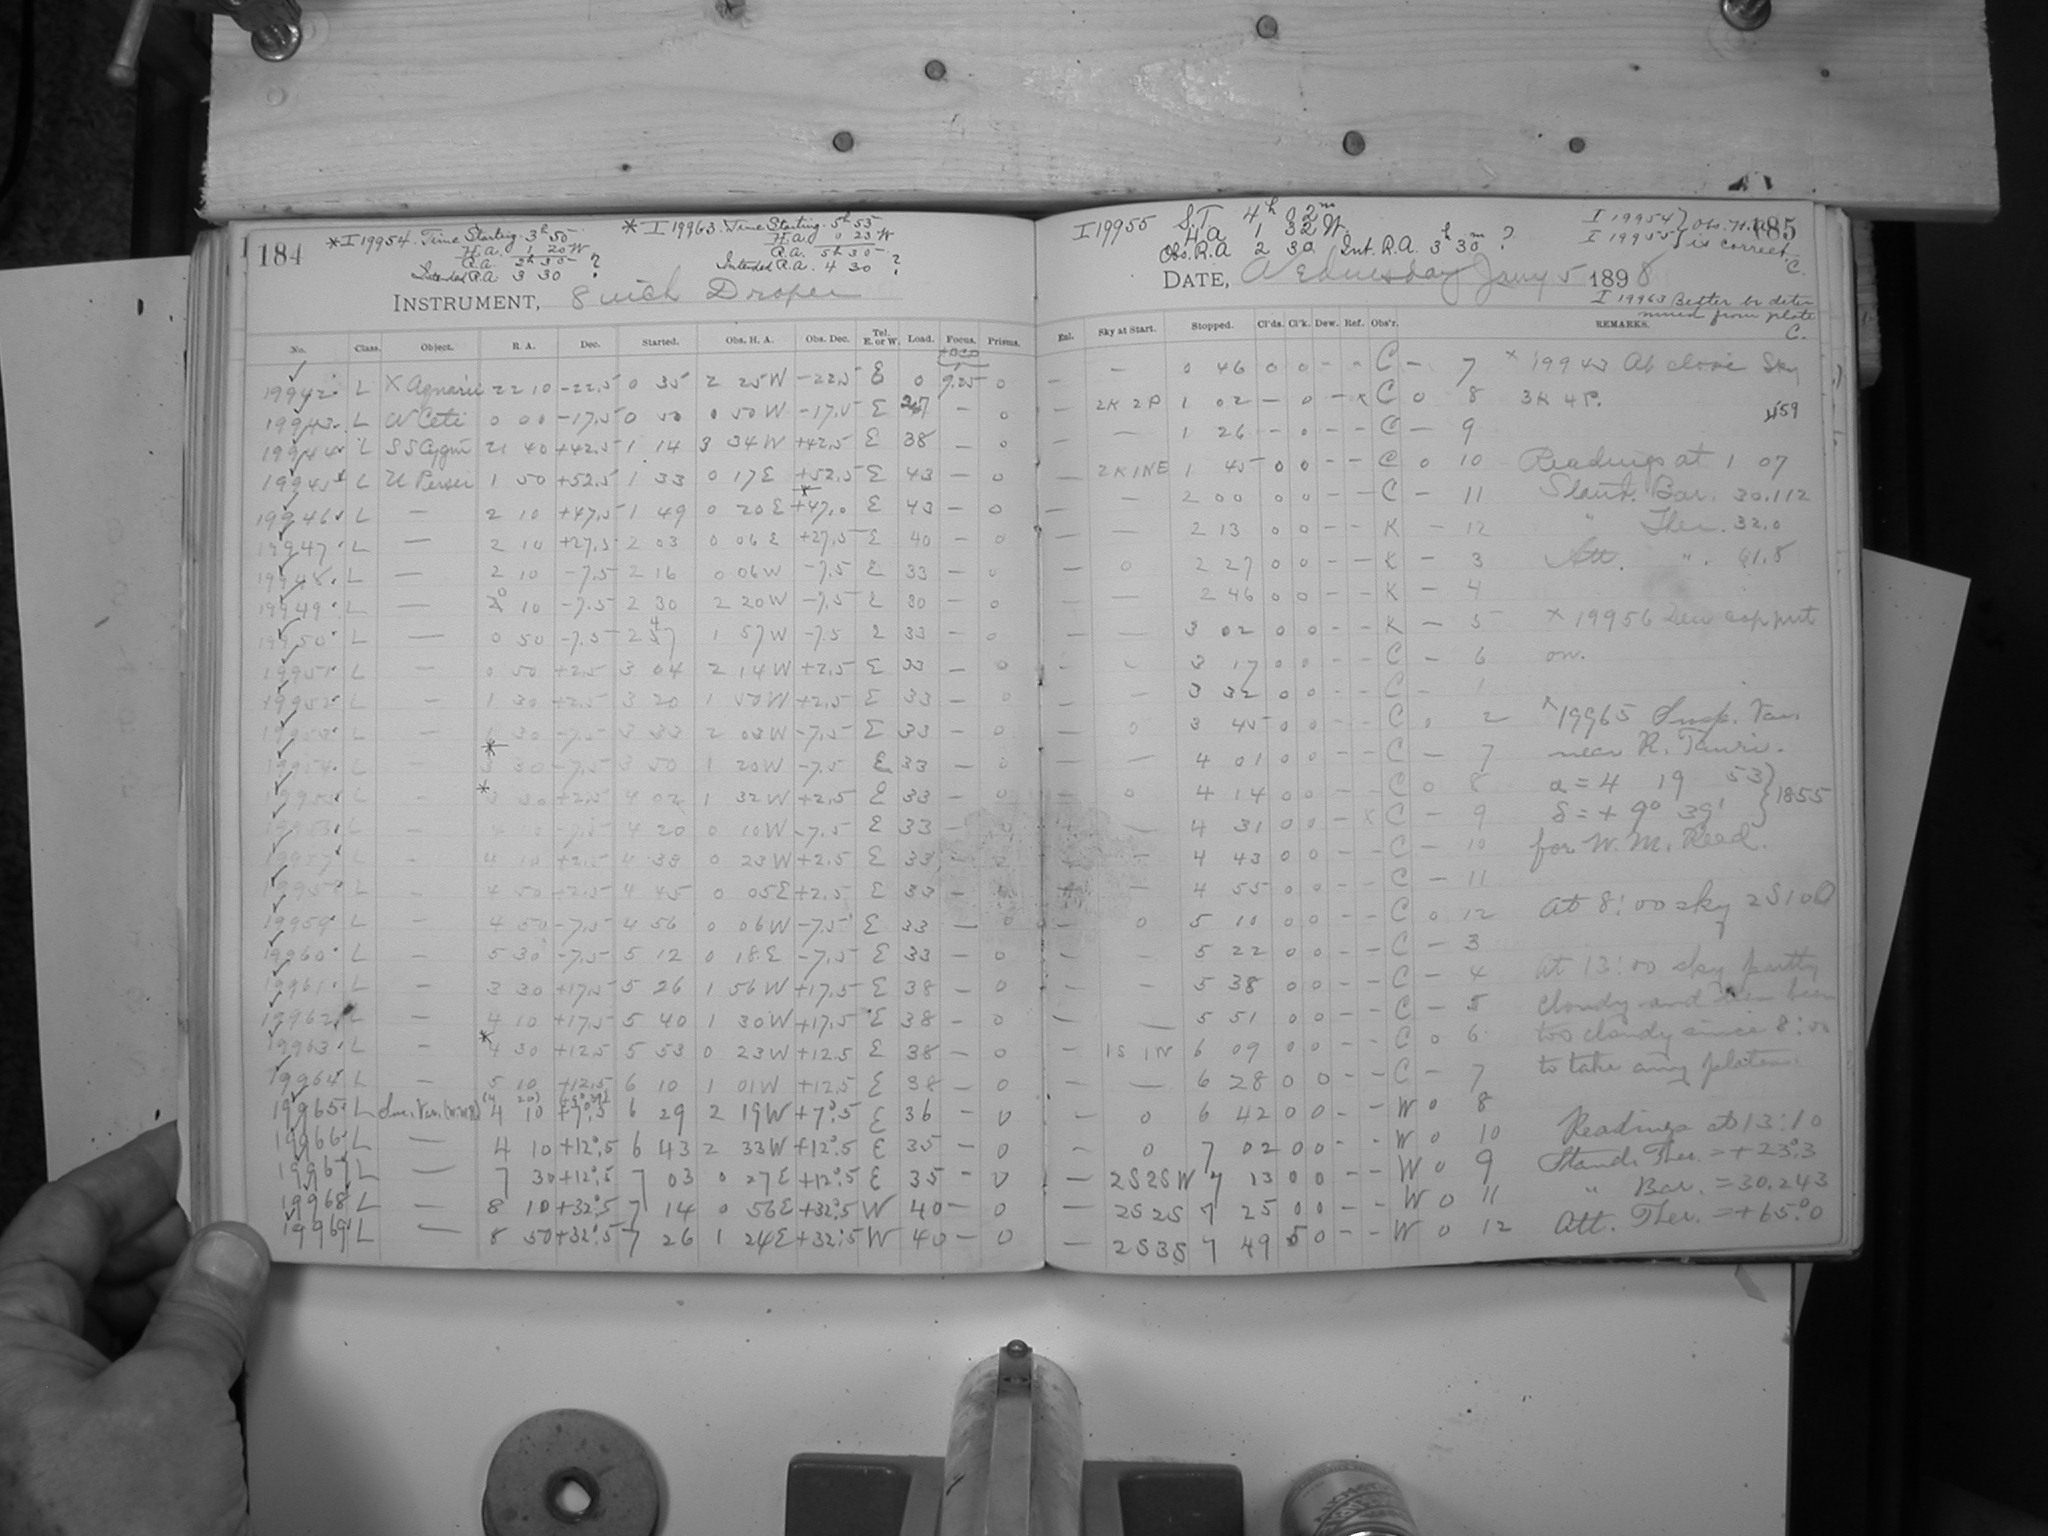 184
*I 19954. Time Starting. 3h 50
H.a. 1 20 W
R.a. 2h 30 ?
Intended R.A. 3 30
* I 19963. Time Starting. 5h 53
H.a. 0 23 W
R.a. 5h 30 ?
Intended R.A. 4 30
INSTRUMENT, 8 inch Draper
No. Class. Object. R. A. Dec. Started. Obs. H. A. Obs. Dec. Tel. E. or W. Load. Focus. Prisms.
19942 L X Aquarii 22 10 -22.5 0 35 2 25 W -22.5 E 0 9.25 0
19943 L W Ceti 0 00 -17.5 0 50 0 50 W -17.5 E 27 - 0
19944 L SS Cygni 21 40 +42.5 1 14 3 34 W +42.5 E 38 - 0
19945 L U Persei 1 50 +52.5 1 33 0 17 E +52.5 E 43 - 0
19946 L - 2 10 +47.5 1 49 0 20 E +47.0 E 43 - 0
19947 L - 2 10 +27.5 2 03 0 06 E +27.5 E 40 - 0
19948 L - 2 10 -7.5 2 16 0 06 W -7.5 E 33 - 0
19949 L - 0 10 -7.5 2 30 2 20 W -7.5 E 30 - 0
19950 L - 0 50 -7.5 2 47 1 57 W -7.5 E 33 - 0
19951 L - 0 50 +2.5 3 04 2 14 W +2.5 E 33 - 0
19952 L - 1 30 +2.5 3 20 1 50 W +2.5 E 33 - 0
19953 L - 1 30 -7.5 3 33 2 03 W -7.5 E 33 - 0
19954 L - * 3 30 -7.5 3 50 1 20 W -7.5 E 33 - 0
19955 L - * 3 30 +2.5 4 02 1 32 W +2.5 E 33 - 0
19956 L - 4 10 -7.5 4 20 0 10 W -7.5 E 33 - 0
19957 L - 4 10 +2.5 4 33 0 23 W +2.5 E 33 - 0
19958 L - 4 50 +2.5 4 45 0 05 E +2.5 E 33 - 0
19959 L - 4 50 -7.5 4 56 0 06 W -7.5 E 33 - 0
19960 L - 5 30 -7.5 5 12 0 18 E -7.5 E 33 - 0
19961 L - 3 30 +17.5 5 26 1 56 W +17.5 E 38 - 0
19962 L - 4 10 +17.5 5 40 1 30 W +17.5 E 38 - 0
19963 L - * 4 30 +12.5 5 53 0 23 W +12.5 E 38 - 0
19964 L - 5 10 +12.5 6 10 1 01 W +12.5 E 38 - 0
19965 L 4 10 +7.5 6 29 2 19 W +7.5 E 36 - 0
19966 L - 4 10 +12.5 6 43 2 33 W +12.5 E 35 - 0
19967 L - 7 30 +12.5 7 03 0 27 E +12.5 E 35 - 0
19968 L - 8 10 +32.5 7 14 0 56 E +32.5 W 40 - 0
19969 L - 8 50 +32.5 7 26 1 24 E +32.5 W 40 - 0
185
I 19955 S.T. 4h 02m
H a 1 32 W.
Obs. R.A 2 30 Int. R.A. 3h 30m ?
I 19954 } Obs. H.a.
I 19955 } is correct.
C.
DATE, Wednesday Jany 5 1898
I 19963 Better be deter
mined from plate
C.
Enl. Sky at Start. Stopped. Cl'ds. Cl'k. Dew. Ref. Obs'r. REMARKS.
- - 0 46 0 0 - - C - 7 x 19943 Ab above Sky
- 2K 2P 1 02 - 0 - x C 0 8 3K 4P.
- - 1 26 - 0 - - C - 9
- 2K1NE 1 45 0 0 - - C 0 10 Readings at 1 07
- - 2 00 0 0 - - C - 11 Stand. Bar. 30.112
- - 2 13 0 0 - - K - 12 " Ther. 32.0
- 0 2 27 0 0 - - K - 3 Att. " 61.8
- - 2 46 0 0 - - K - 4
- - 3 02 0 0 - - K - 5 x 19956 Dew cap put
- - 3 17 0 0 - - C - 6 on.
- - 3 32 0 0 - - C - 1
- 0 3 45 0 0 - - C 0 2 x 19965 Susp. Var.
- - 4 01 0 0 - - C - 7 near R. Tauri.
- 0 4 14 0 0 - - C 0 8 a = 4 19 53 } 1855
- - 4 31 0 0 - x C - 9 δ = + 9° 39' }
- - 4 43 0 0 - - C - 10 for W. M. Reed.
- - 4 55 0 0 - - C - 11
- 0 5 10 0 0 - - C 0 12 At 8:00 sky 2S10
- - 5 22 0 0 - - C - 3
- - 5 38 0 0 - - C - 4 At 13:00 sky partly
- - 5 51 0 0 - - C - 5 cloudy and been
- 1S 1N 6 09 0 0 - - C 0 6 too cloudy since 8:00
- - 6 28 0 0 - - C - 7 to take any plates.
- 0 6 42 0 0 - - W 0 8
- 0 7 02 0 0 - - W 0 10 Readings at 13:10
- 2S2SW 7 13 0 0 - - W 0 9 Stand. Ther. = +23°.3
- 2S 2S 7 25 0 0 - - W 0 11 " Bar. = 30.243
- 2S3S 7 49 5 0 - - W 0 12 Att. Ther. = +65.°0